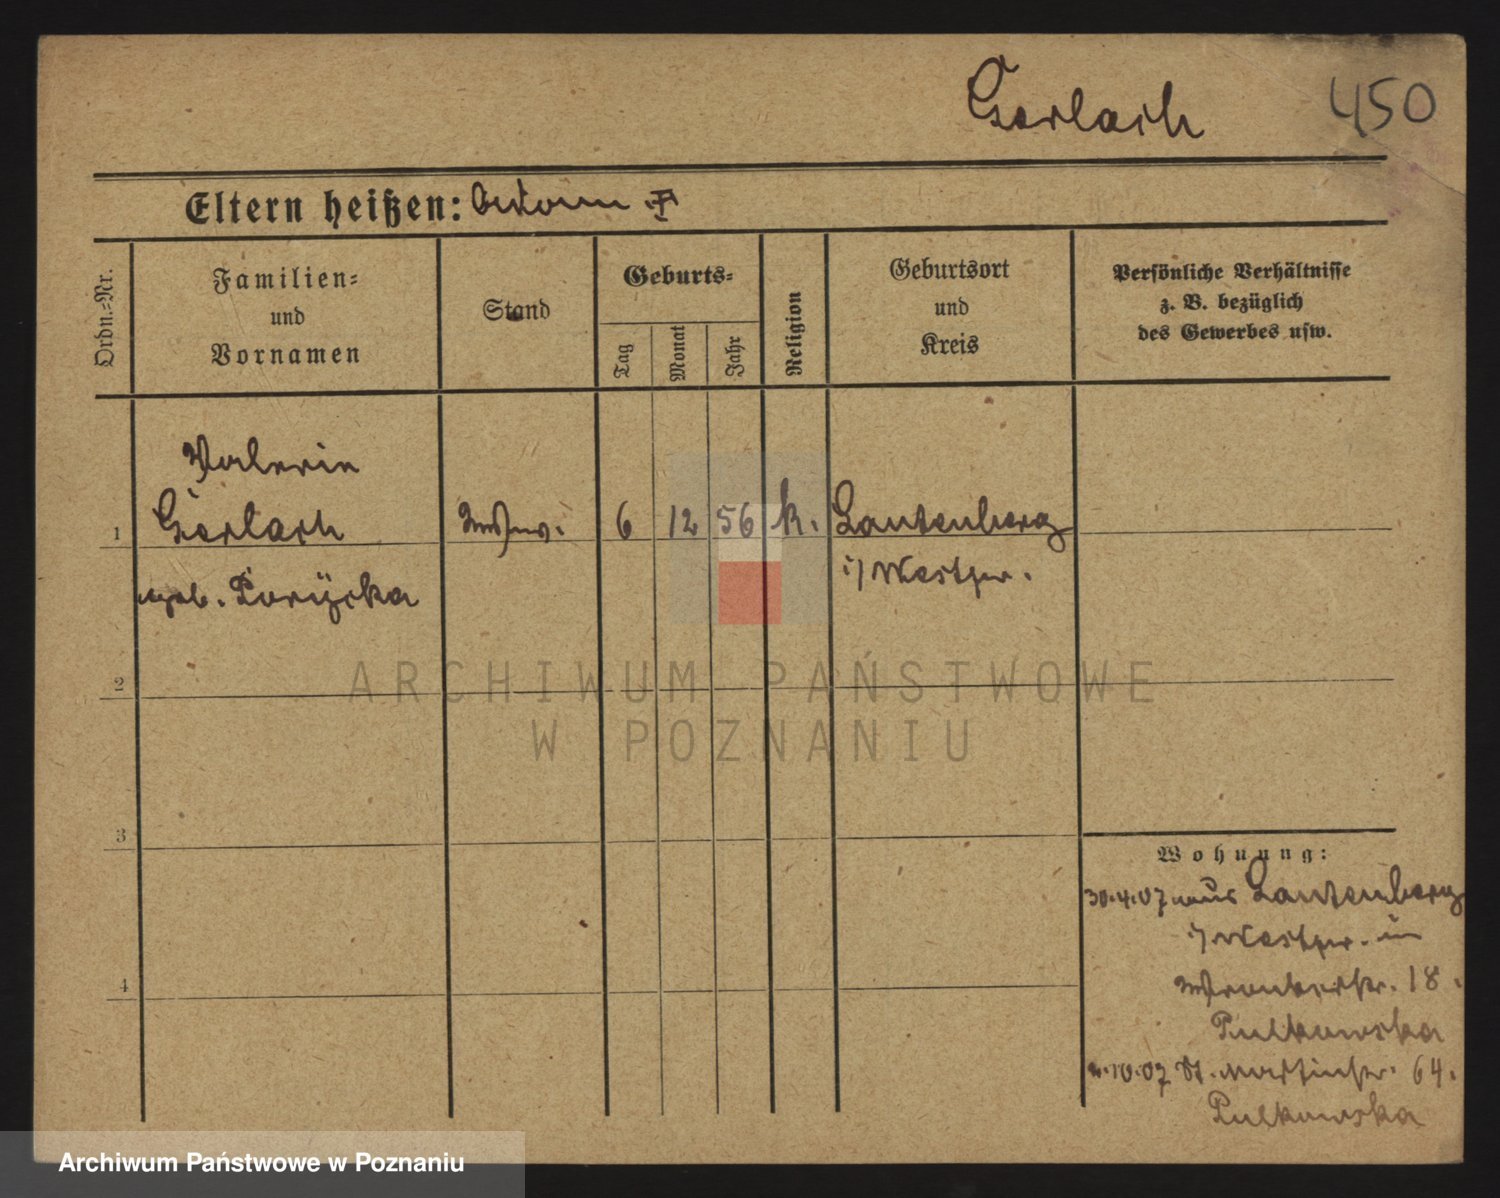 Gerlach
450
Eltern heißen: Adam †
Ordn.-Nr.
Familien-
und
Vornamen
Stand
Geburts-
Tag
Monat
Jahr
Religion
Geburtsort
und
Kreis
Persönliche Verhältnisse
z. B. bezüglich
des Gewerbes usw.
Valerie
1 Gerlach Wwe. 6 12 56 k. Lautenberg
geb. i/Westpr.
2
3
4
Wohnung:
30.4.07 aus Lautenberg
i/Westpr. in
Wronkerstr. 18.
Pulkowska
4.10.07 St. Martinstr. 64.
Pulkowska
ARCHIWUM PAŃSTWOWE
W POZNANIU
Archiwum Państwowe w Poznaniu